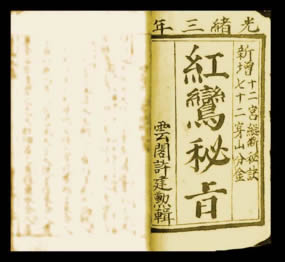 光緒三年
新增
十二宮秘訣
七十二穿山分金
紅鸞秘旨
雲閣許建勳輯